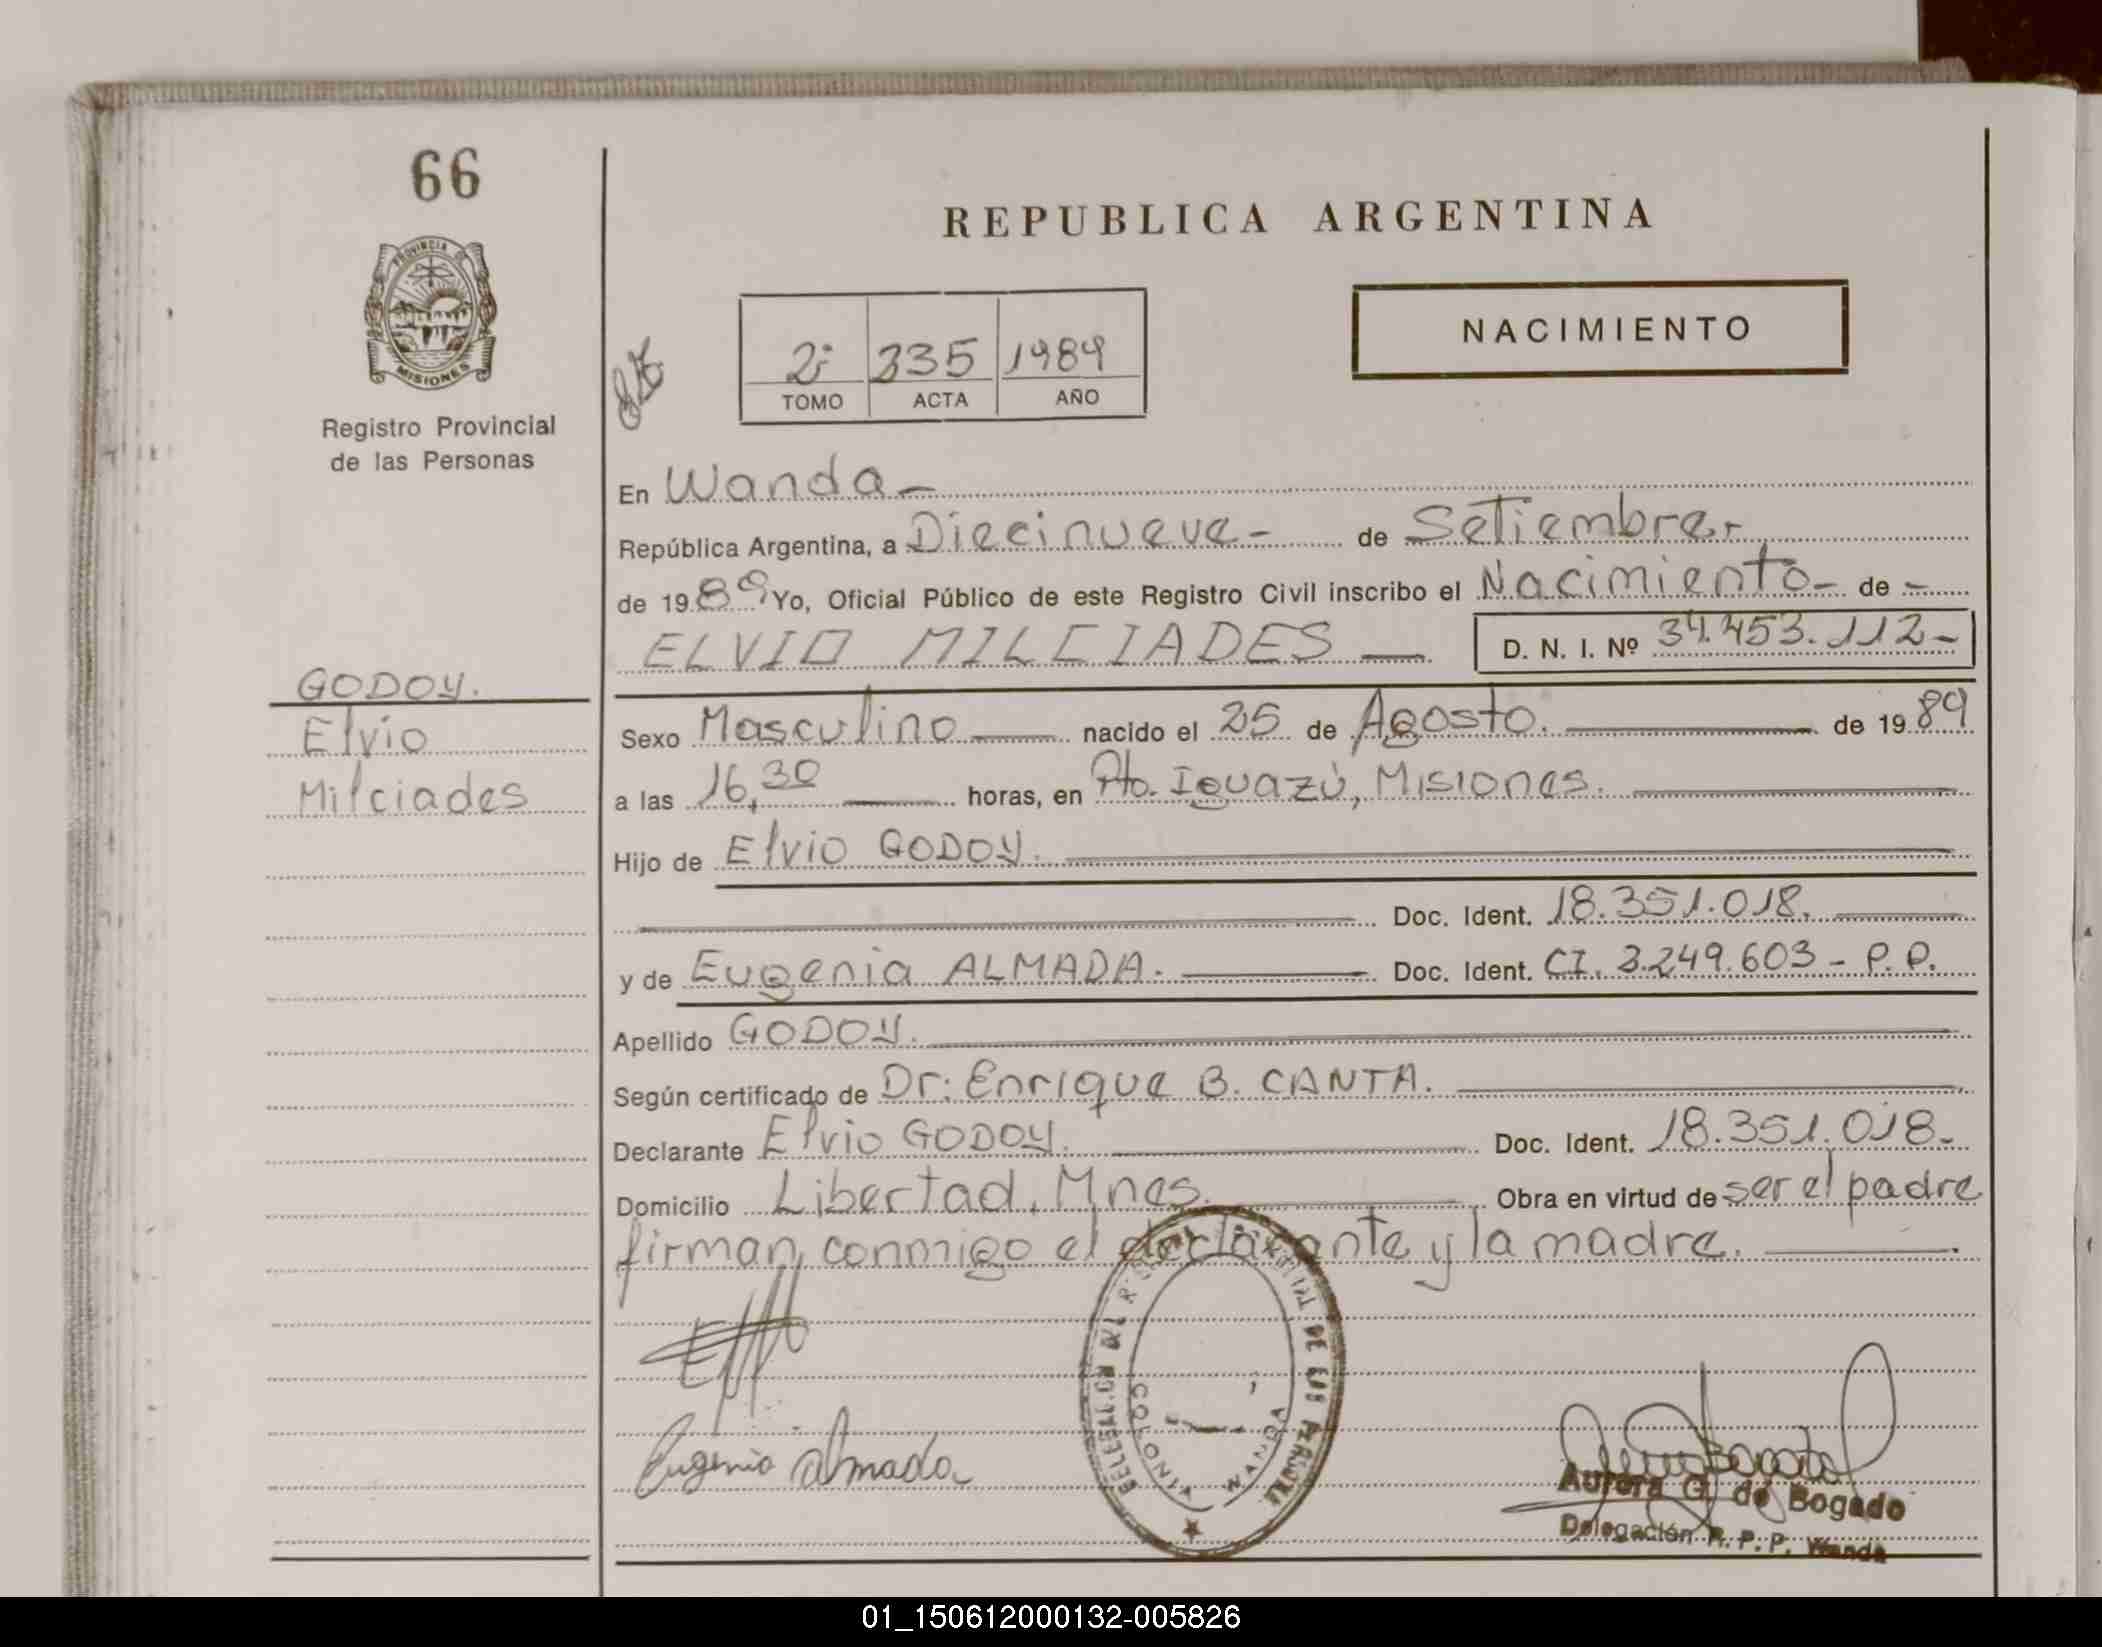 66
REPUBLICA ARGENTINA
PROVINCIA DE
MISIONES
Registro Provincial
de las Personas
2º 335 1989
TOMO ACTA AÑO
NACIMIENTO
En Wanda-
República Argentina, a Diecinueve- de Setiembre.-
de 1989 Yo, Oficial Público de este Registro Civil inscribo el Nacimiento- de -
ELVIO MILCIADES — D. N. I. Nº 34.453.112-
GODOY.
Elvio
Milciades
Sexo Masculino — nacido el 25 de Agosto. — de 1989
a las 16,30 — horas, en Pto. Iguazú, Misiones. —
Hijo de Elvio GODOY. —
— Doc. Ident. 18.351.018. —
y de Eugenia ALMADA. — Doc. Ident. CI. 3.249.603 - P.P.
Apellido GODOY. —
Según certificado de Dr: Enrique B. CANTA. —
Declarante Elvio GODOY. — Doc. Ident. 18.351.018.-
Domicilio Libertad, Mnes. — Obra en virtud de ser el padre
firman conmigo el declarante y la madre. —
Eugenia Almada
COLONIA WANDA
Aurora G. de Bogado
Delegación R. P. P. Wanda
01_150612000132-005826